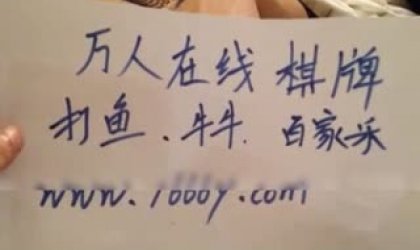 万人在线 棋牌
打鱼、牛牛. 百家乐
www.1000y.com